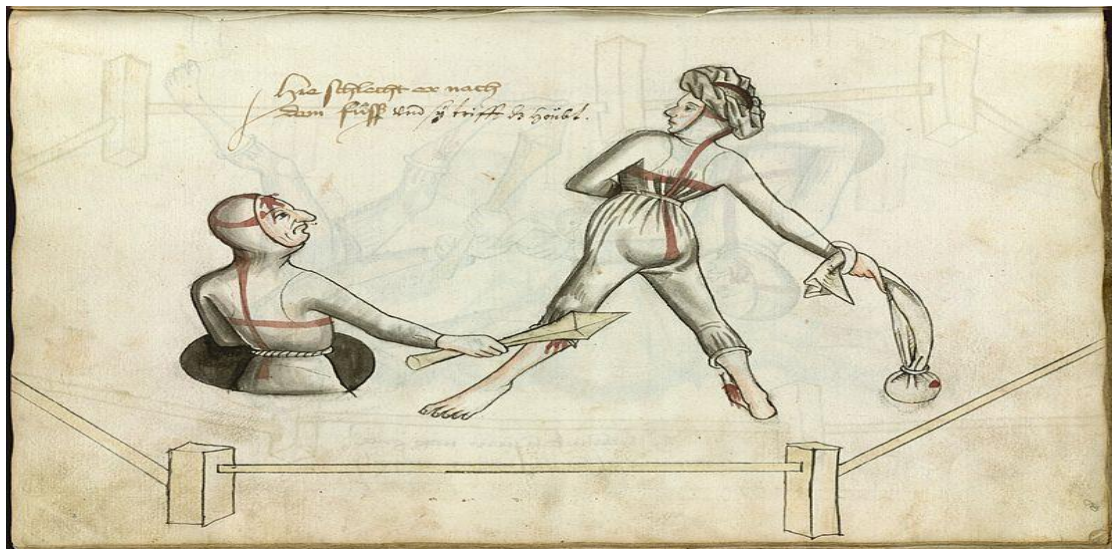 Hie schlecht er nach
dem fuͦß vnd sÿ trifft dz höubt.